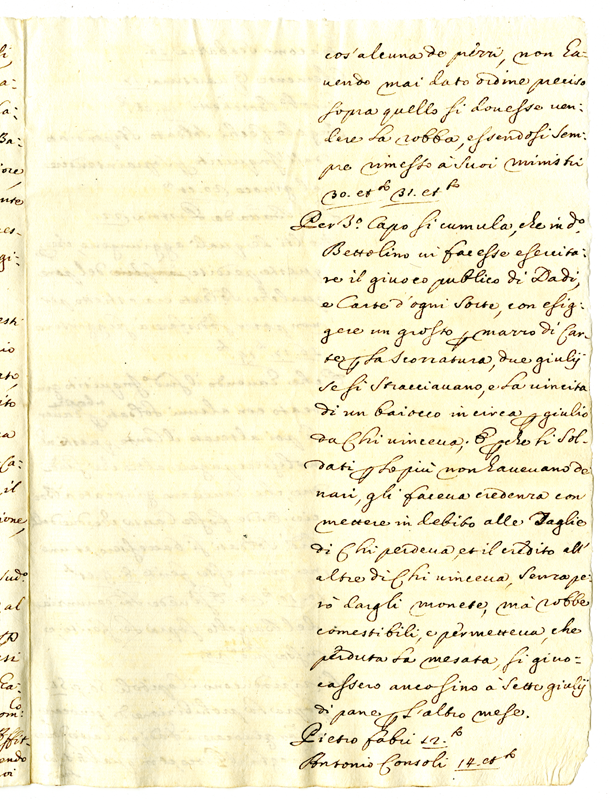 cos'alcuna de prezzi, non ha=
uendo mai dato ordine preciso
sopra quello si douesse uen=
dere la robba, essendosi sem=
pre rimesso à suoi ministri
30. et 31. et
Per 3.º Capo si cumula, che in do.
Bettolino ui facesse esercita=
re il giuoco publico di Dadi,
e Carte d'ogni sorte, con esig=
gere un grosso p marzo di Car=
te p la scorratura, due giulij
se si stracciauano, e la uincita
di un baiocco in circa p giulio
da Chi uinceua; E pche li Sol=
dati p lo più non haueuano de
nari, gli faceua credenza con
mettere in debito alle Taglie
di Chi perdeua, et il credito all'
altre di Chi uinceua, senza pe=
rò dargli monete, mà robbe
comestibili, e permetteua, che
perduta la mesata, si giuo=
cassero anco sino à sette giulij
di pane p l'altro mese.
Pietro Fabri 12.
Antonio Consoli 14. et